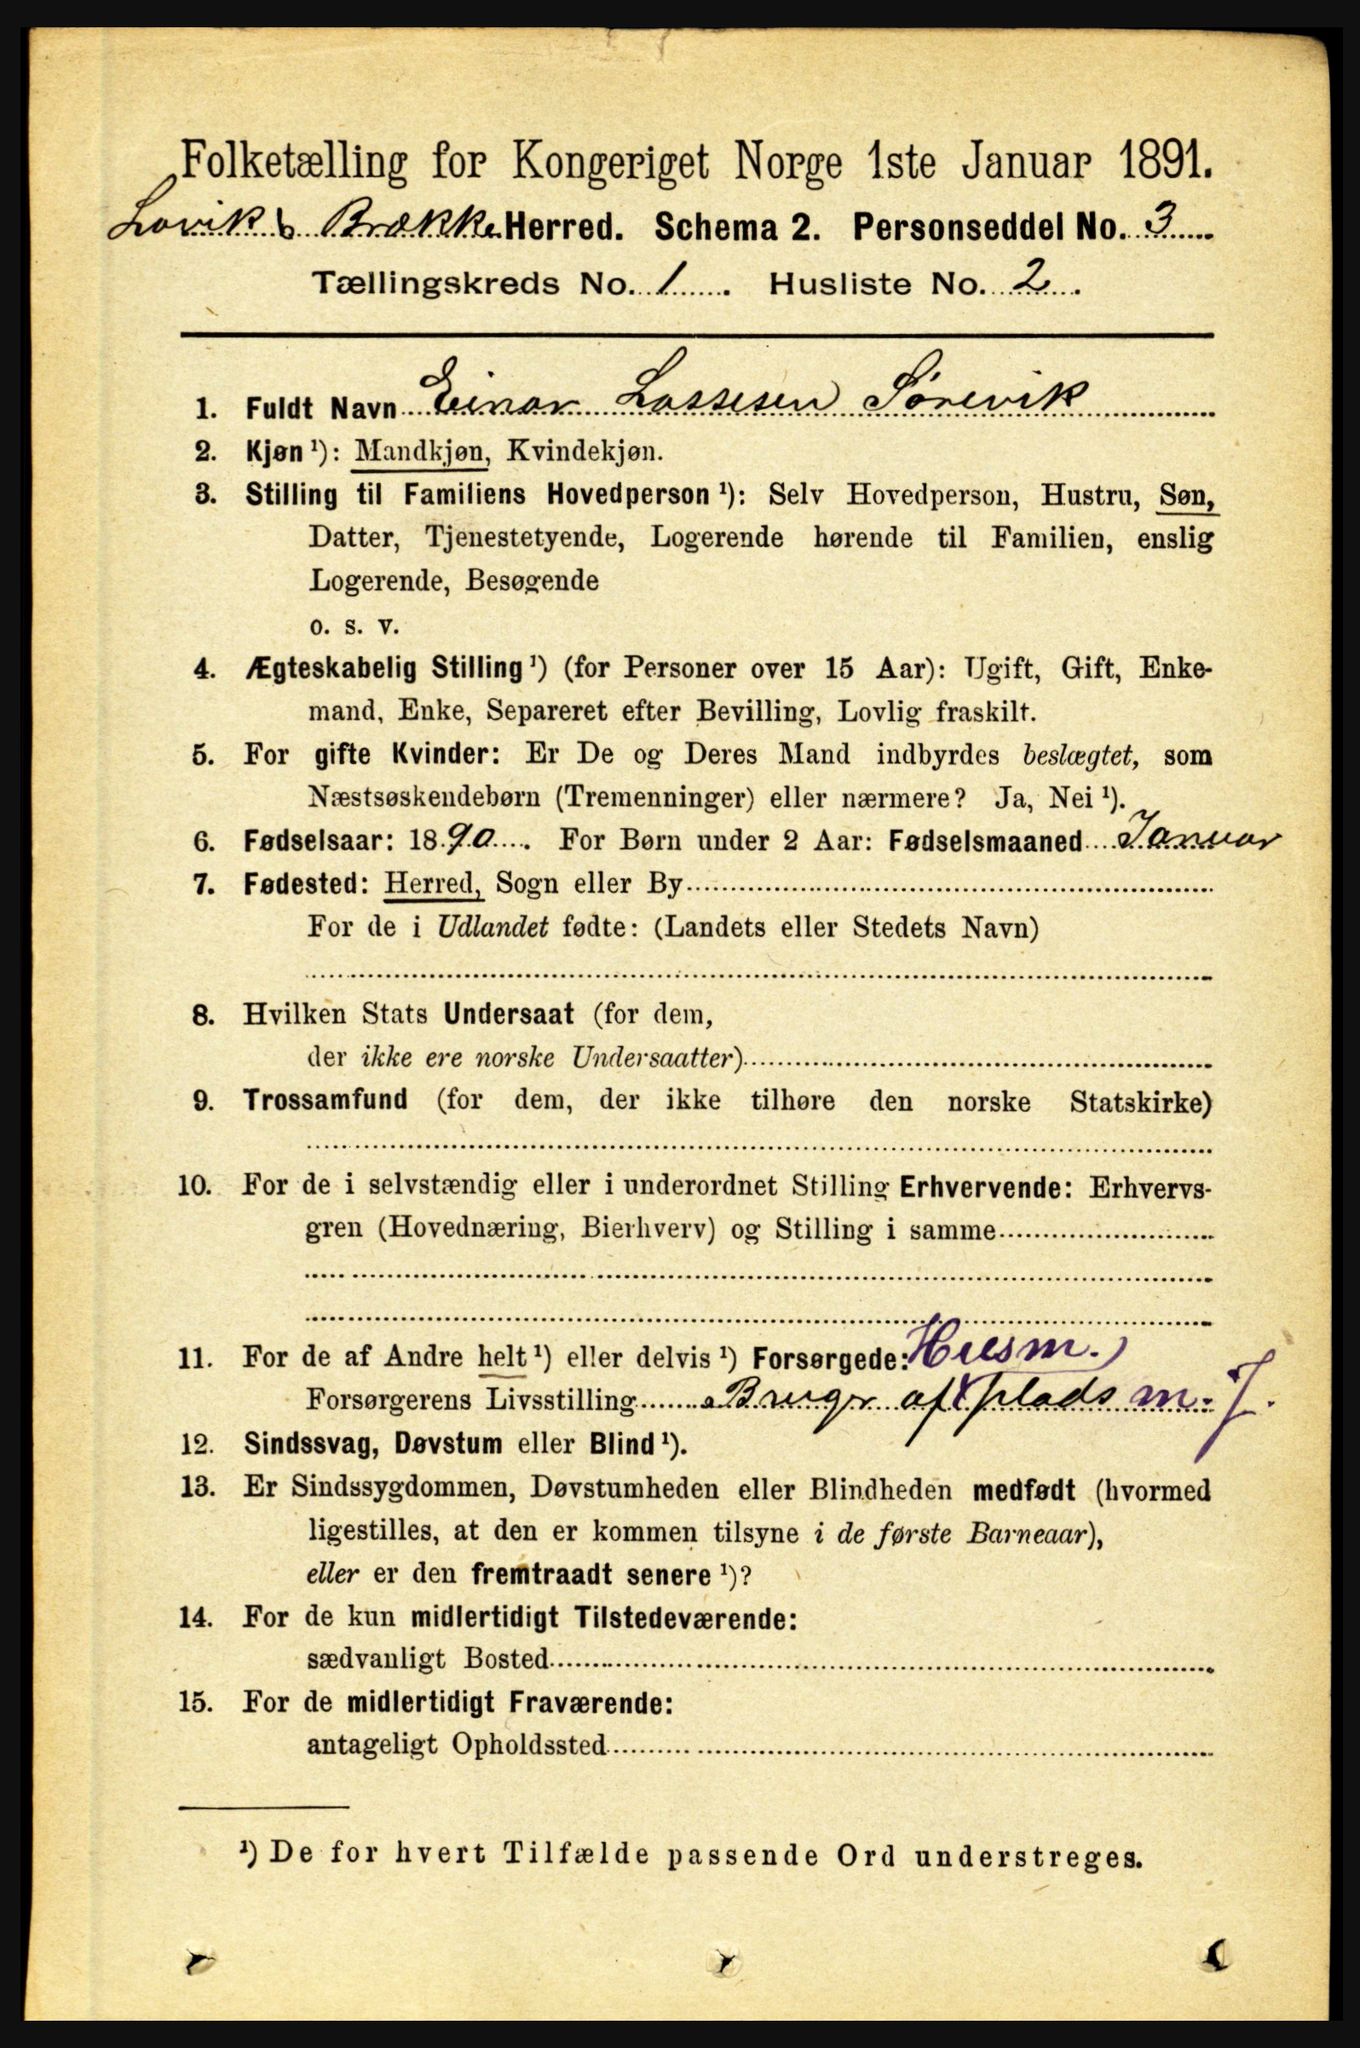 Folketælling for Kongeriget Norge 1ste Januar 1891.
Lavik b Brække Herred. Schema 2. Personseddel No. 3
Tællingskreds No. 1. Husliste No. 2.
1. Fuldt Navn Einar Lassesen Sørevik
2. Kjøn ¹): Mandkjøn, Kvindekjøn.
3. Stilling til Familiens Hovedperson ¹): Selv Hovedperson, Hustru, Søn,
Datter, Tjenestetyende, Logerende hørende til Familien, enslig
Logerende, Besøgende
o. s. v.
4. Ægteskabelig Stilling ¹) (for Personer over 15 Aar): Ugift, Gift, Enke-
mand, Enke, Separeret efter Bevilling, Lovlig fraskilt.
5. For gifte Kvinder: Er De og Deres Mand indbyrdes beslægtet, som
Næstsøskendebørn (Tremenninger) eller nærmere? Ja, Nei ¹).
6. Fødselsaar: 1890. For Børn under 2 Aar: Fødselsmaaned Januar
7. Fødested: Herred, Sogn eller By
For de i Udlandet fødte: (Landets eller Stedets Navn)
8. Hvilken Stats Undersaat (for dem,
der ikke ere norske Undersaatter)
9. Trossamfund (for dem, der ikke tilhøre den norske Statskirke)
10. For de i selvstændig eller i underordnet Stilling Erhvervende: Erhvervs-
gren (Hovednæring, Bierhverv) og Stilling i samme
11. For de af Andre helt ¹) eller delvis ¹) Forsørgede: Husm.
Forsørgerens Livsstilling Bruger af plads m. J.
12. Sindssvag, Døvstum eller Blind ¹).
13. Er Sindssygdommen, Døvstumheden eller Blindheden medfødt (hvormed
ligestilles, at den er kommen tilsyne i de første Barneaar),
eller er den fremtraadt senere ¹)?
14. For de kun midlertidigt Tilstedeværende:
sædvanligt Bosted
15. For de midlertidigt Fraværende:
antageligt Opholdssted
¹) De for hvert Tilfælde passende Ord understreges.